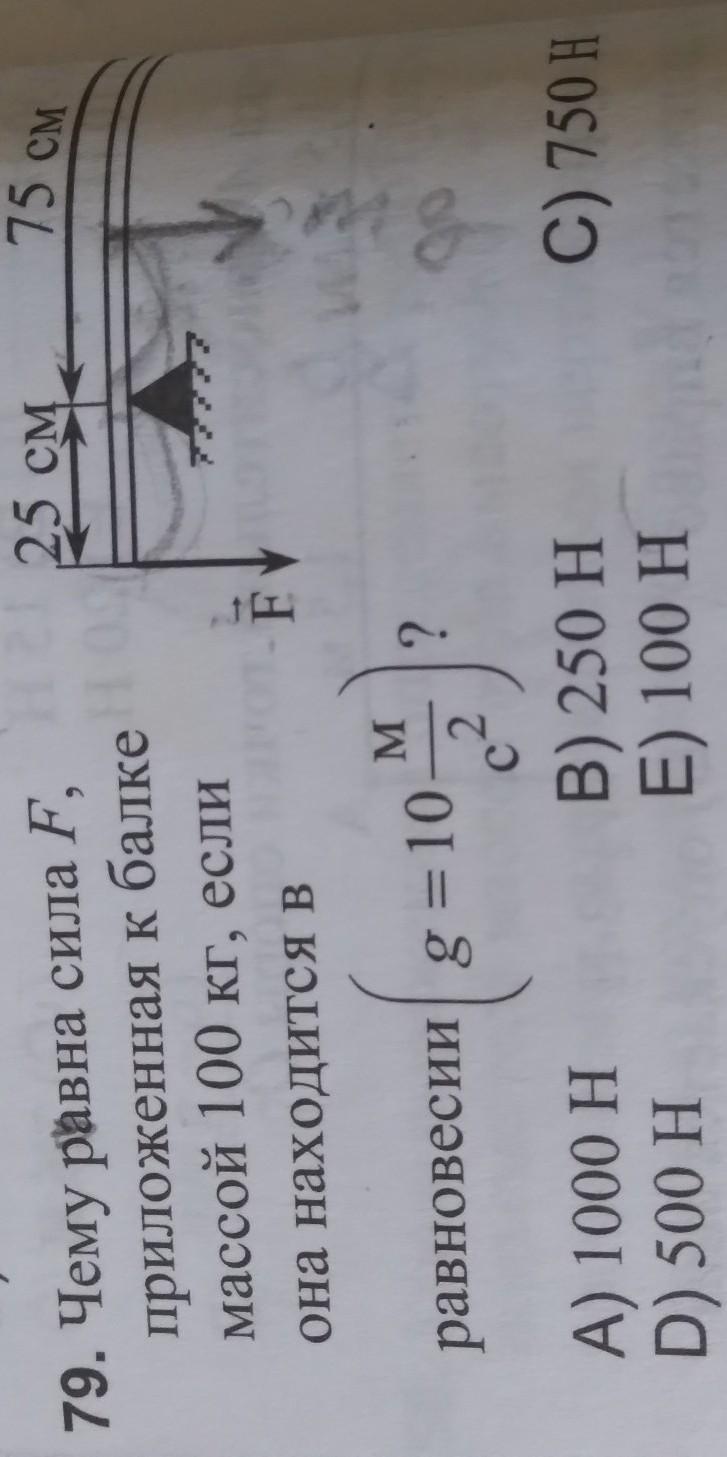 79. Чему равна сила F,
приложенная к балке
массой 100 кг, если
она находится в
равновесии (g = 10 м/с²)?
25 см 75 см
F⃗
A) 1000 Н B) 250 Н C) 750 Н
D) 500 Н E) 100 Н